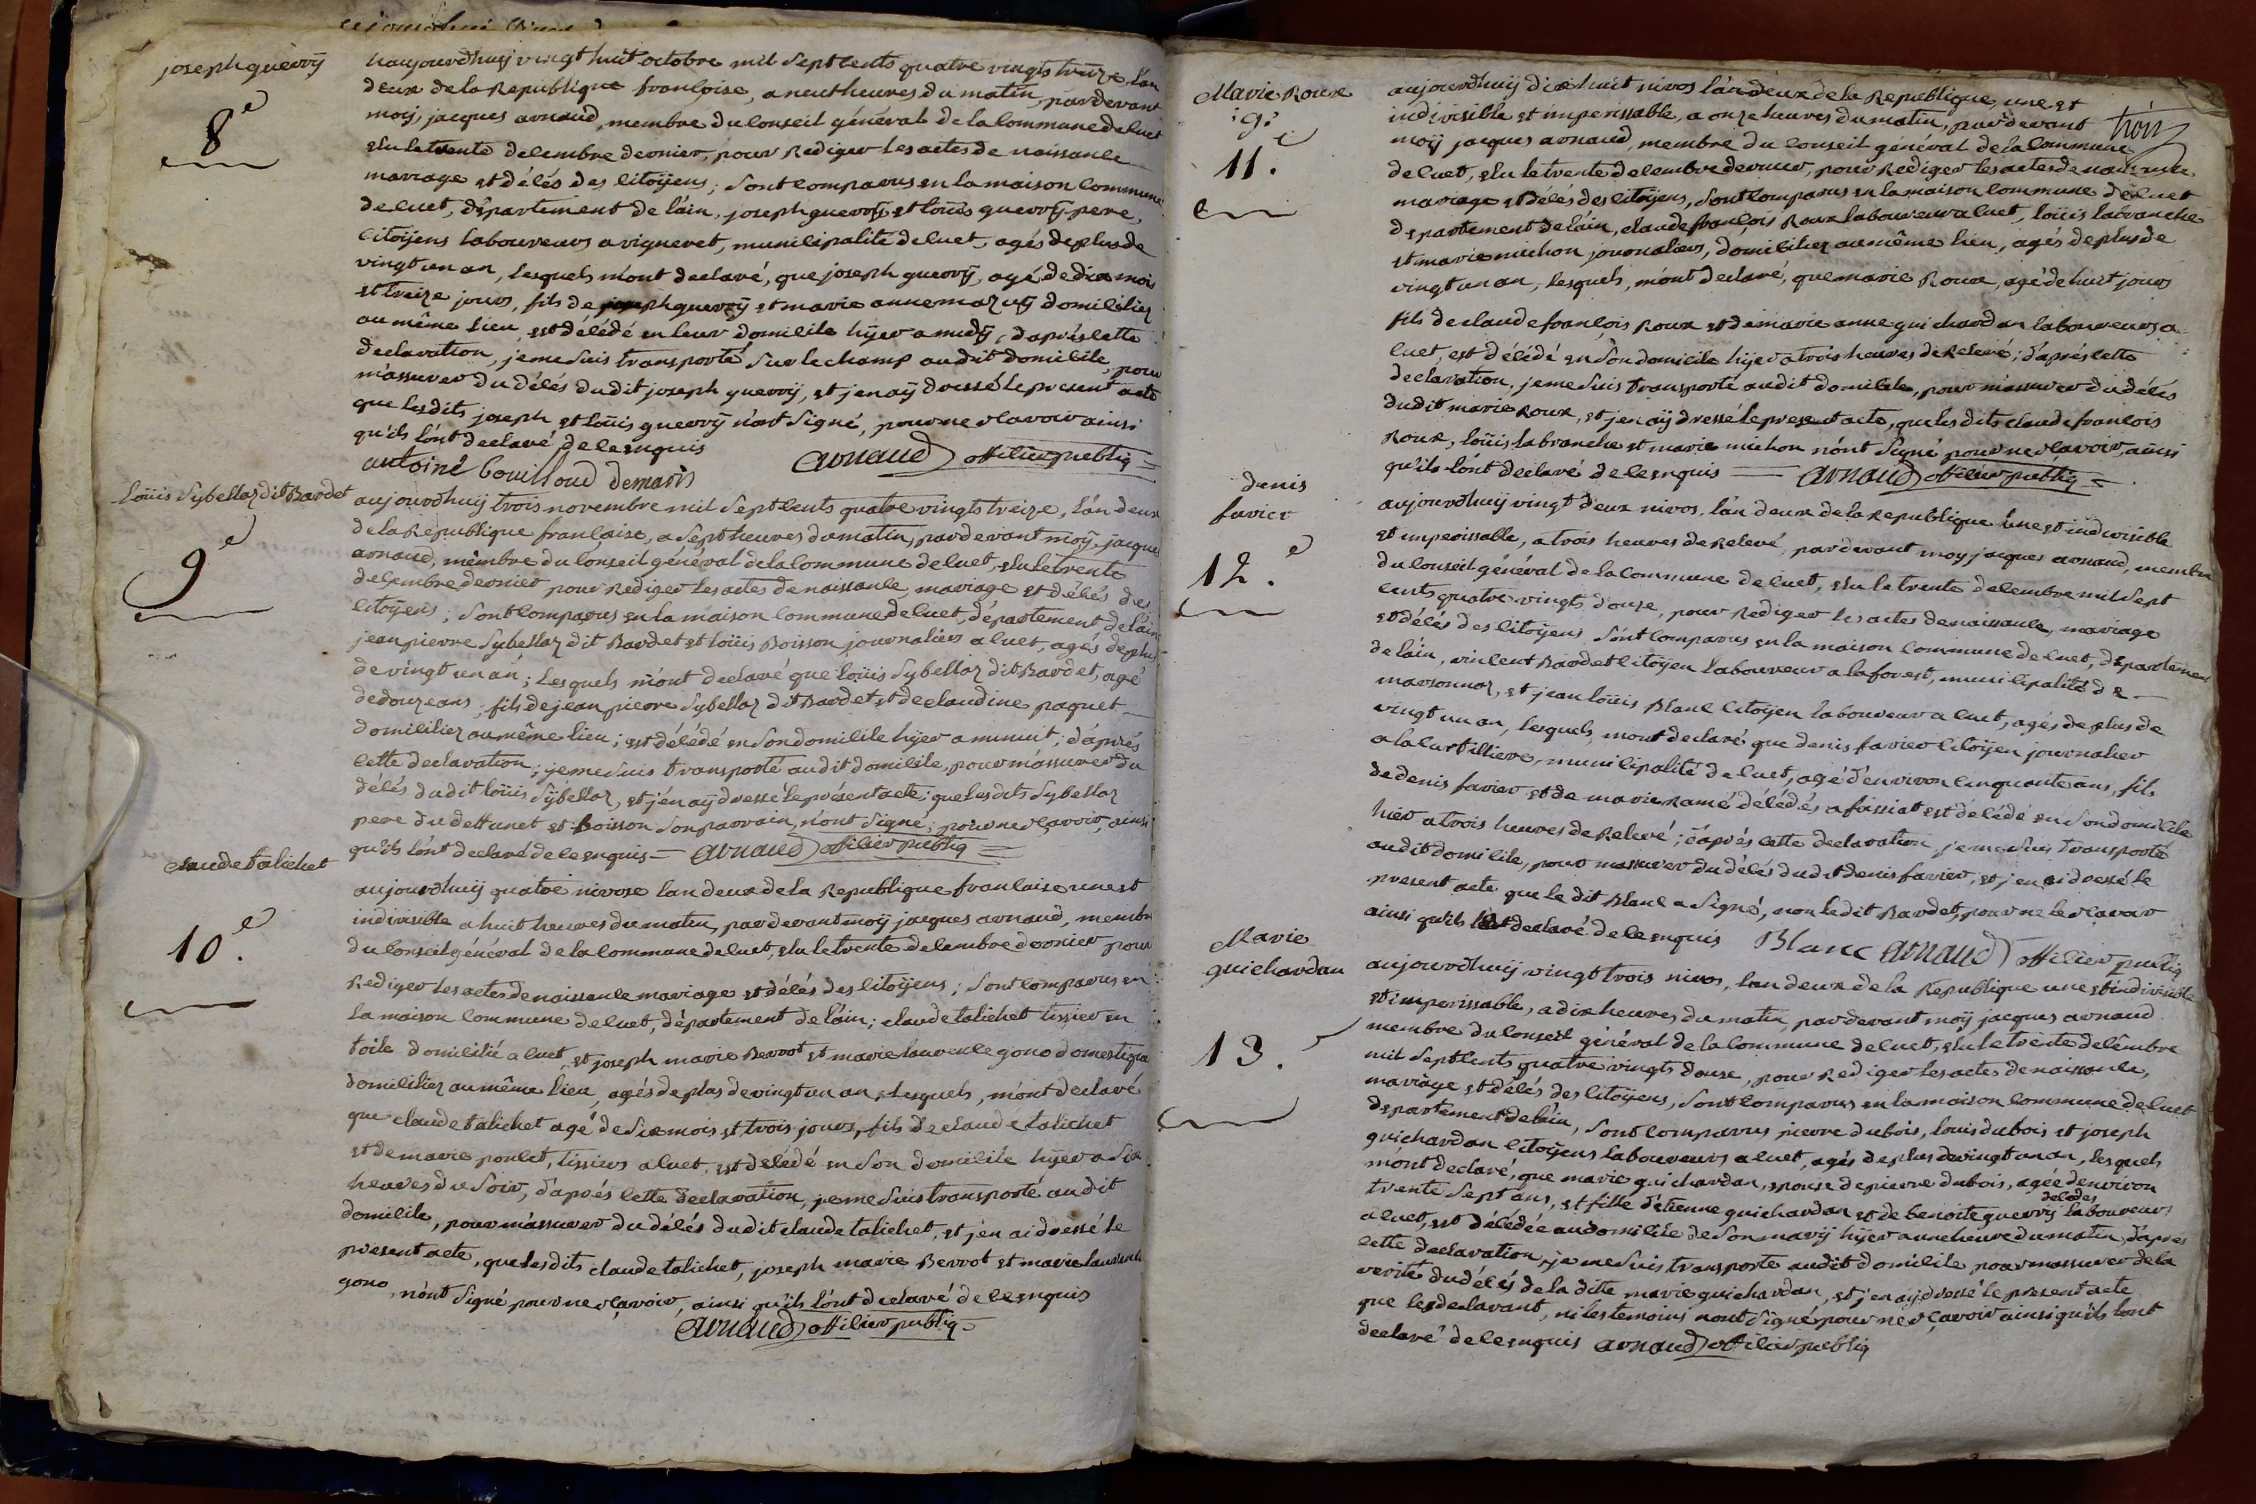 joseph guerry
8e
haujourdhuij vingt huit octobre mil sept cents quatre vingts treize l'an
deux de la Republique françoise, a neuf heures du matin, pardevant
moij, jacques arnaud, membre du Conseil général de la Commune de Cuet
élu le trente decembre dernier, pour Rediger les actes de naissance
mariage et décés des Citoÿens; sont comparus en la maison Commune
de Cuet, département de l'ain, joseph guerrÿ et loüis guerrÿ pere,
Citoÿens laboureurs a vigneret, municipalité de Cuet, agés de plus de
vingt un an, lesquels m'ont declaré, que joseph guerrÿ, agé de dix mois
et treize jours, fils de joseph guerrÿ et marie anne mazuÿ domiciliez
au même lieu, est décédé en leur domicile hÿer a midÿ, d'aprés cette
declaration, je me suis transporté sur le champ au dit domicile, pour
m'assurer du décés du dit joseph guerrÿ, et j'en aÿ dressé le present acte
que les dits joseph et loüis guerrÿ n'ont signé, pour ne scavoir ainsi
qu'ils l'ónt declaré de ce enquis
antoine bouilloud demaris arnaud officier publiq
Loüis Sybellaz dit Bardet
9e
aujourdhuij trois novembre mil sept cents quatre vingts treize, l'an deux
de la République francaise, a sept heures du matin, pardevant moÿ jacques
arnaud, mêmbre du Cónseil général de la Commune de Cuet, élu le trente
decembre dernier pour Rediger les actes de naissance, mariage et décés des
Citoÿens; sont comparus en la maison Commune de Cuet, département de l'ain
jean pierre Sybellaz dit Bardet et loüis Boisson journaliers a Cuet, agés de plus
de vingt un an; lesquels m'ont declaré que loüis Sybellaz dit Bardet, agé
de douze ans, fils de jean pierre Sybellaz dit Bardet et de claudine paquet
domiciliez au même lieu; est décédé en son domicile hÿer a minuit, d'aprés
cette declaration, je me suis transporté au dit domicile, pour m'assurer du
décés du dit loüis Sÿbellaz, et j'en aÿ dressé le présent acte; que les dits Sybellaz
pere du deffunct et Boisson son parrain, n'ont signé; pour ne scavoir, ainsi
qu'ils l'ónt declaré de ce enquis arnaud officier publiq
claude talichet
10.e
aujourdhuij quatre nivose l'an deux de la Republique francaise une et
indivisible a huit heures du matin, pardevant moÿ jacques arnaud, membre
du Conseil général de la Commune de Cuet, élu le trente decembre dernier pour
Rediger les actes de naissance mariage et décés des Citoÿens; sont comparus en
la maison Commune de Cuet, département de l'ain; claude talichet tissier en
toile domicilié a Cuet, et joseph marie Berrot et marie laurence gono domestique
domiciliez au même lieu, agés de plus de vingt un an, lesquels, m'ont declaré
que claude talichet agé de six mois et trois jours, fils de claude talichet
et de marie poncet, tissiers a Cuet, est décédé en son domicile hÿer a six
heures du soir, d'aprés cette declaration, je me suis transporté au dit
domicile, pour m'assurer du décés du dit claude talichet, et j'en ai dressé le
present acte, que les dits claude talichet, joseph marie Berrot et marie laurence
gono, n'ónt signé pour ne scavoir, ainsi qu'ils l'ónt declaré de ce enquis
arnaud officier publiq
trois
Marie Roux
9e
11.e
aujourdhuij dix huit nivos l'an deux de la Republique, une et
indivisible et imperissable, a onze heures du matin, pardevant
moÿ jacques arnaud, membre du Conseil général de la Commune
de Cuet, élu le trente decembre dernier, pour Rediger les actes de naissance
mariage et décés des Citoÿens, sont comparus en la maison Commune de Cuet
departement de l'ain, claude françois Roux laboureur a Cuet, loüis labranche
et marie michon journaliers, domiciliez au même lieu, agés de plus de
vingt un an, lesquels, m'ónt declaré, que marie Roux, agé de huit jours
fils de claude françois Roux et de marie anne guichardan laboureurs a
Cuet, est décédé en son domicile hÿer a trois heures de Relevé; d'aprés cette
declaration, je me suis transporté au dit domicile, pour m'assurer du décés
du dit marie Roux, et j'en aÿ dressé le present acte, que les dits claude françois
Roux, loüis labranche et marie michon n'ónt signé pour ne scavoir, ainsi
qu'ils l'ónt declaré de ce enquis arnaud officier publiq
denis
favier
12.e
aujourdhuij vingt deux nivos, l'an deux de la Republique une et indivisible
et imperissable, a trois heures de Relevé, pardevant moy jacques arnaud, membre
du Conseil général de la Commune de Cuet, élu le trente decembre mil sept
cents quatre vingts douze, pour Rediger les actes de naissance, mariage
et décés des Citoÿens, sont comparus en la maison Commune de Cuet, département
de l'ain, vincent Bardet Citoÿen laboureur a la forest, municipalité de
marsonnaz, et jean loüis Blanc Citoÿen laboureur a Cuet, agés de plus de
vingt un an, lesquels, m'ont declaré que denis favier Citoÿen journalier
a la Curtilliere, municipalité de Cuet, agé d'environ cinquante ans, fils
de denis favier et de marie Ramé décédés a foissiat est décédé en son domicile
hier a trois heures de Relevé; d'aprés cette declaration, je me suis transporté
au dit domicile, pour m'assurer du décés du dit denis favier, et j'en ai dressé le
present acte que le dit Blanc a signé, non le dit Bardet, pour ne le scavoir
ainsi qu'ils l'ónt declaré de ce enquis Blanc arnaud officier publiq
Marie
guichardan
13.
aujourdhuij vingt trois nivos, l'an deux de la Republique une et indivisible
et imperissable, a dix heures du matin, pardevant moÿ jacques arnaud
membre du Conseil général de la Commune de Cuet, élu le trente décembre
mil sept cents quatre vingts douze, pour Rediger les actes de naissance,
mariage et décés des Citoÿens, sont comparus en la maison Commune de Cuet
departement de l'ain, sont comparus pierre dubois, louis dubois et joseph
guichardan Citoÿens laboureurs a Cuet, agés de plus de vingt un an, lesquels
m'ónt declaré, que marie guichardan, epouse de pierre dubois, agée d'environ
trente sept ans, et fille d'etienne guichardan et de benoite guerrÿ décédés laboureurs
a Cuet, est décédée au domicile de son marÿ hÿer a une heure du matin, d'apres
cette declaration, je me suis transporté au dit domicile pour m'assurer de la
verité du décés de la dite marie guichardan, et j'en aÿ dressé le present acte
que les declarant, ni les temoins n'ont signé pour ne scavoir ainsi qu'ils l'ont
declaré de ce enquis arnaud officier publiq